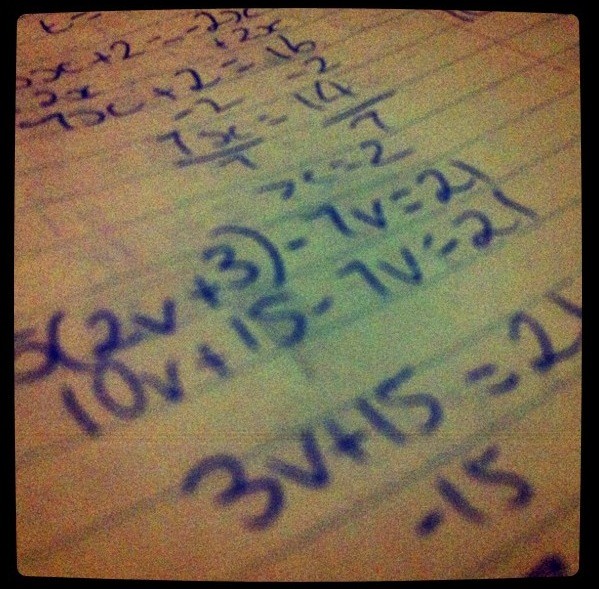 5x+2=-2x
+2x
7x+2=16
-2 -2
7x=14
7 7
x=2
5(2v+3)-7v=21
10v+15-7v=21
3v+15=21
-15